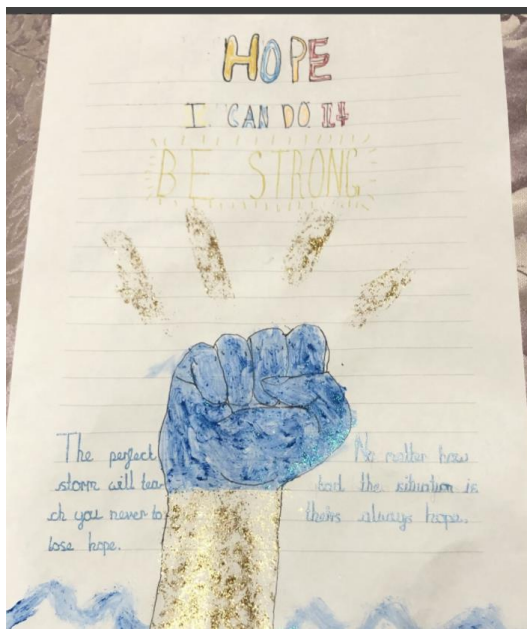 HOPE
I CAN DO It
BE STRONG
The perfect
storm will tea-
ch you never to
lose hope.
No matter how
bad the situation is
theirs always hope.